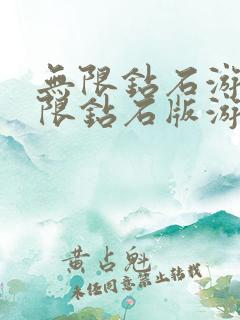 無限鉆石游
限鉆石版游
黄占魁
未经同意禁止转载